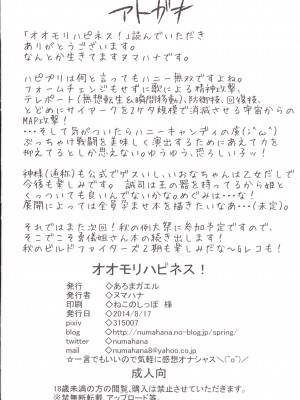 アトガキ
「オオモリハピネス！」読んでいただき
ありがとうございます。
なんとか生きてますヌマハナです。
ハピプリは何と言ってもハニー無双ですよね。
フォームチェンジもせずに歌による精神攻撃、
テレポート(無想転生&瞬間移動)、防御技、回復技、
とどめにサイアークを2ケタ規模で消滅させる宇宙からの
MAP攻撃！
・・・そして気がついたらハニーキャンディの虜(；^ω^)
ぶっちゃけ戦闘を美味しく演出するためにあえて力を
抑えてるとしか思えない。ゆうゆう、恐ろしい子ッ！
神様(通称)も公式でゲスいし、おなちゃんは乙女だしで
今後も楽しみです。誠司は王の器を持ってるから姫と
くっついても良いんでないかな。めぐみは・・・な！
展開によっては全員孕ませ本を描きたいなあ・・・(未定)。
それではまた次回！秋の例大祭に参加予定ですので、
そこでこそ勇儀姐さん本の続き出します！
秋のビルドファイターズ2期も楽しみだな～Gレコも！
オオモリハピネス！
発行 ◇あろまガエル
発行者 ◇ヌマハナ
印刷 ◇ねこのしっぽ 様
発行 ◇2014/8/17
pixiv ◇315007
blog ◇http://numahana.no-blog.jp/spring/
twitter ◇numahana
mail ◇numahana8@yahoo.co.jp
☆一言でもいいので気軽に感想オナシャス＼(^o^)／
成人向
18歳未満の方の閲覧、購入は禁止させていただきます。
※禁無断転載、アップロード等。